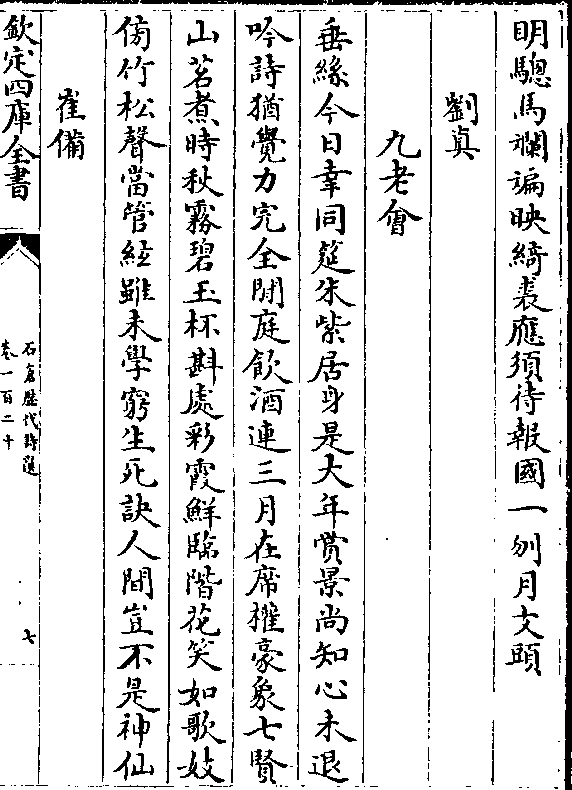 明驄馬斕斒映綺裘應須待報國一刎月支頭
劉真
九老會
垂絲今日幸同筵朱紫居身是大年賞景尚知心未退
吟詩猶覺力完全閒庭飲酒連三月在席擁豪象七賢
山茗煮時秋霧碧玉杯斟處彩霞鮮臨階花笑如歌妓
傍竹松聲當管絃雖未學窮生死訣人間豈不是神仙
崔備
欽定四庫全書
石倉歷代詩選
卷一百二十
七